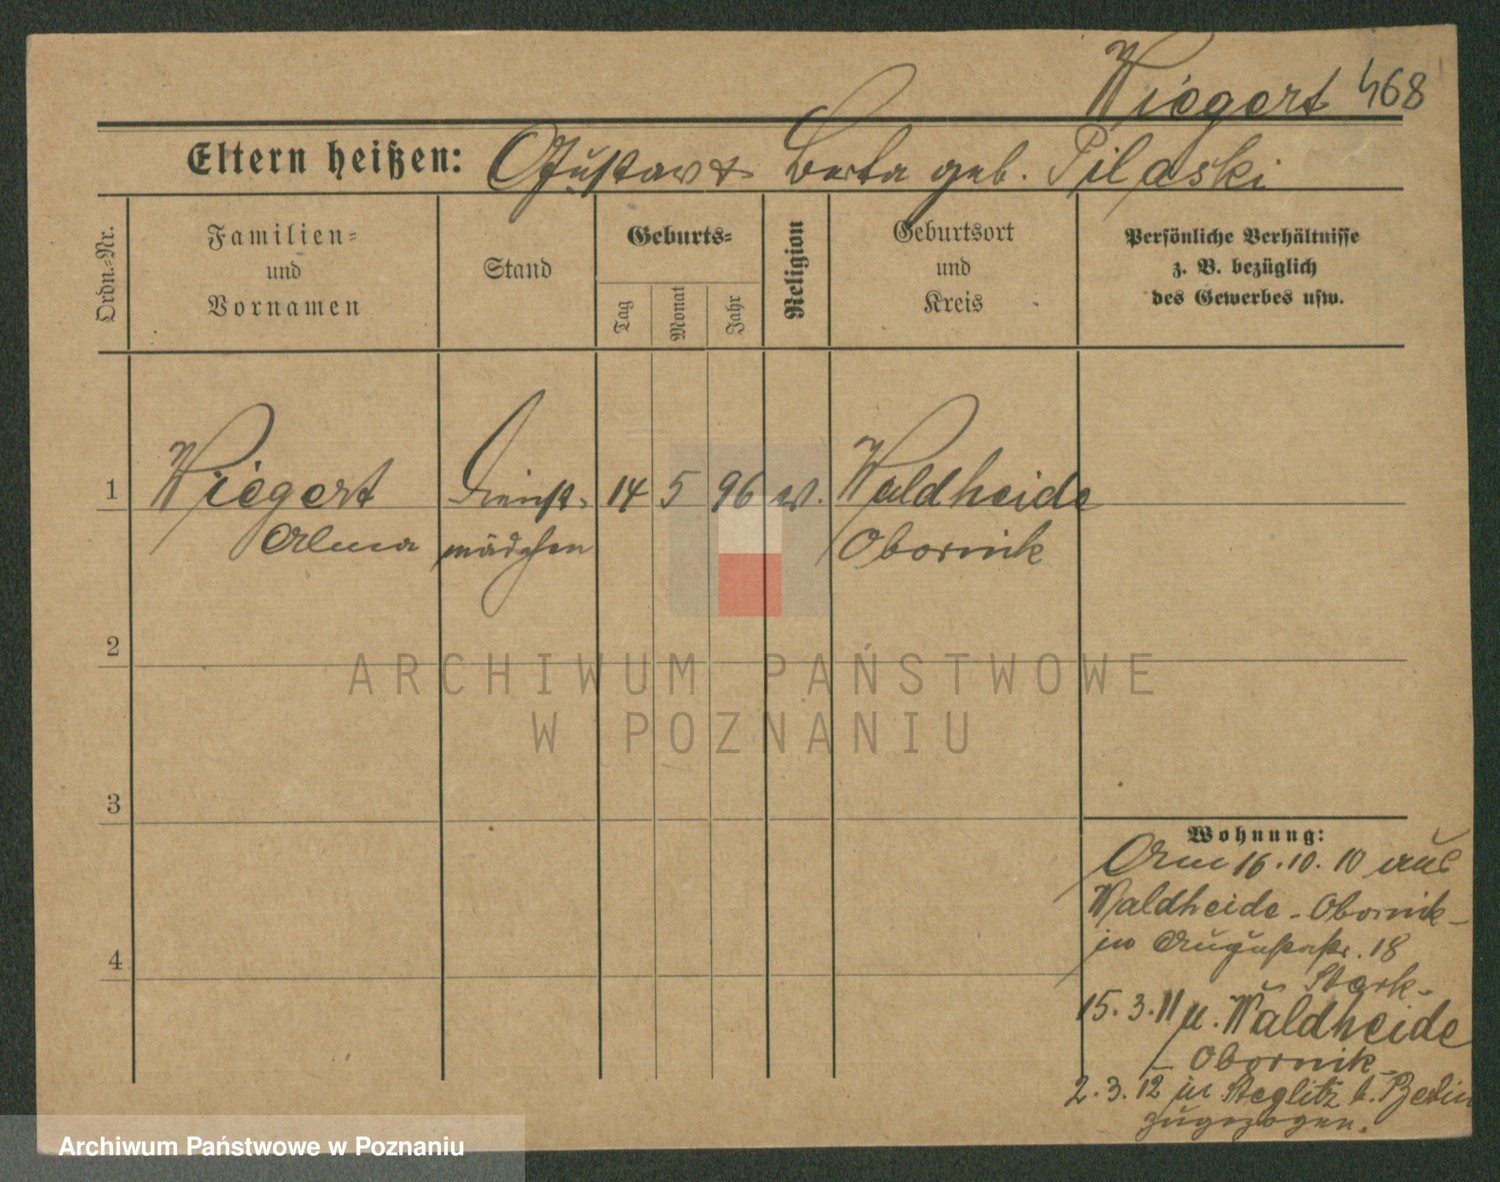 Wiegert 468
Eltern heißen: Gustav & Berta geb. Pilaski
Ordn.-Nr.
Familien-
und
Vornamen
Stand
Geburts-
Tag
Monat
Jahr
Religion
Geburtsort
und
Kreis
Persönliche Verhältnisse
z. B. bezüglich
des Gewerbes usw.
1 Wiegert Dienst- 14 5 96 ev. Waldheide
Alma mädchen Obornik
2
3
4
Wohnung:
Am 16.10.10 aus
Waldheide - Obornik -
in Augustastr. 18
Stark -
15.3.11 n. Waldheide
- Obornik -
2.3.12 in Steglitz b. Berlin
zugezogen.
ARCHIWUM PAŃSTWOWE
W POZNANIU
Archiwum Państwowe w Poznaniu